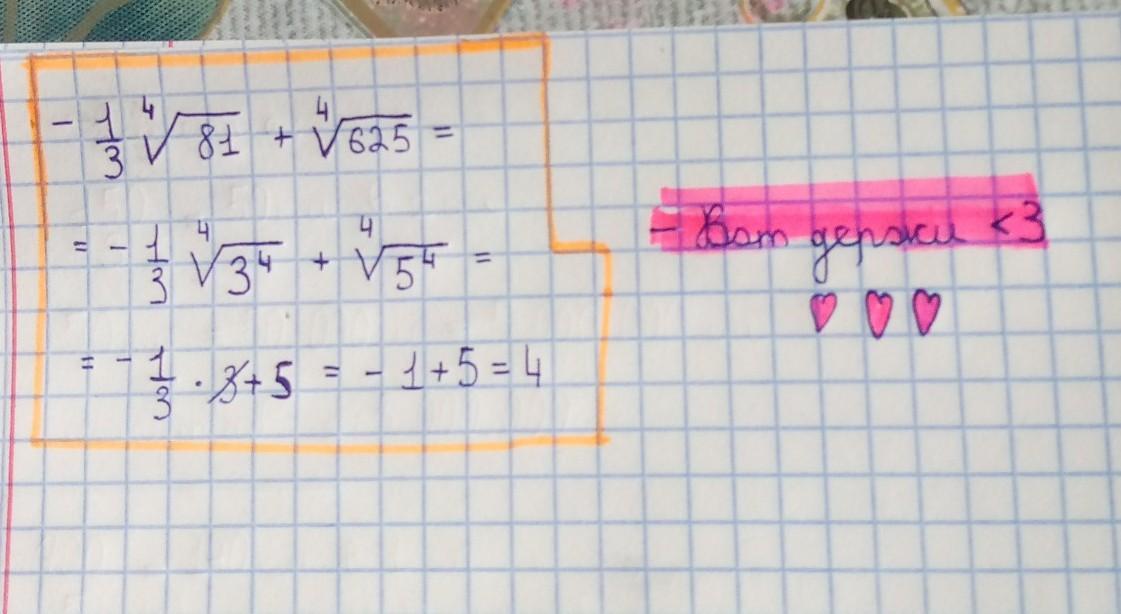 - 1/3 ⁴√81 + ⁴√625 =
= - 1/3 ⁴√3⁴ + ⁴√5⁴ =
= - 1/3 · 3 + 5 = - 1 + 5 = 4
- Вот держи <3